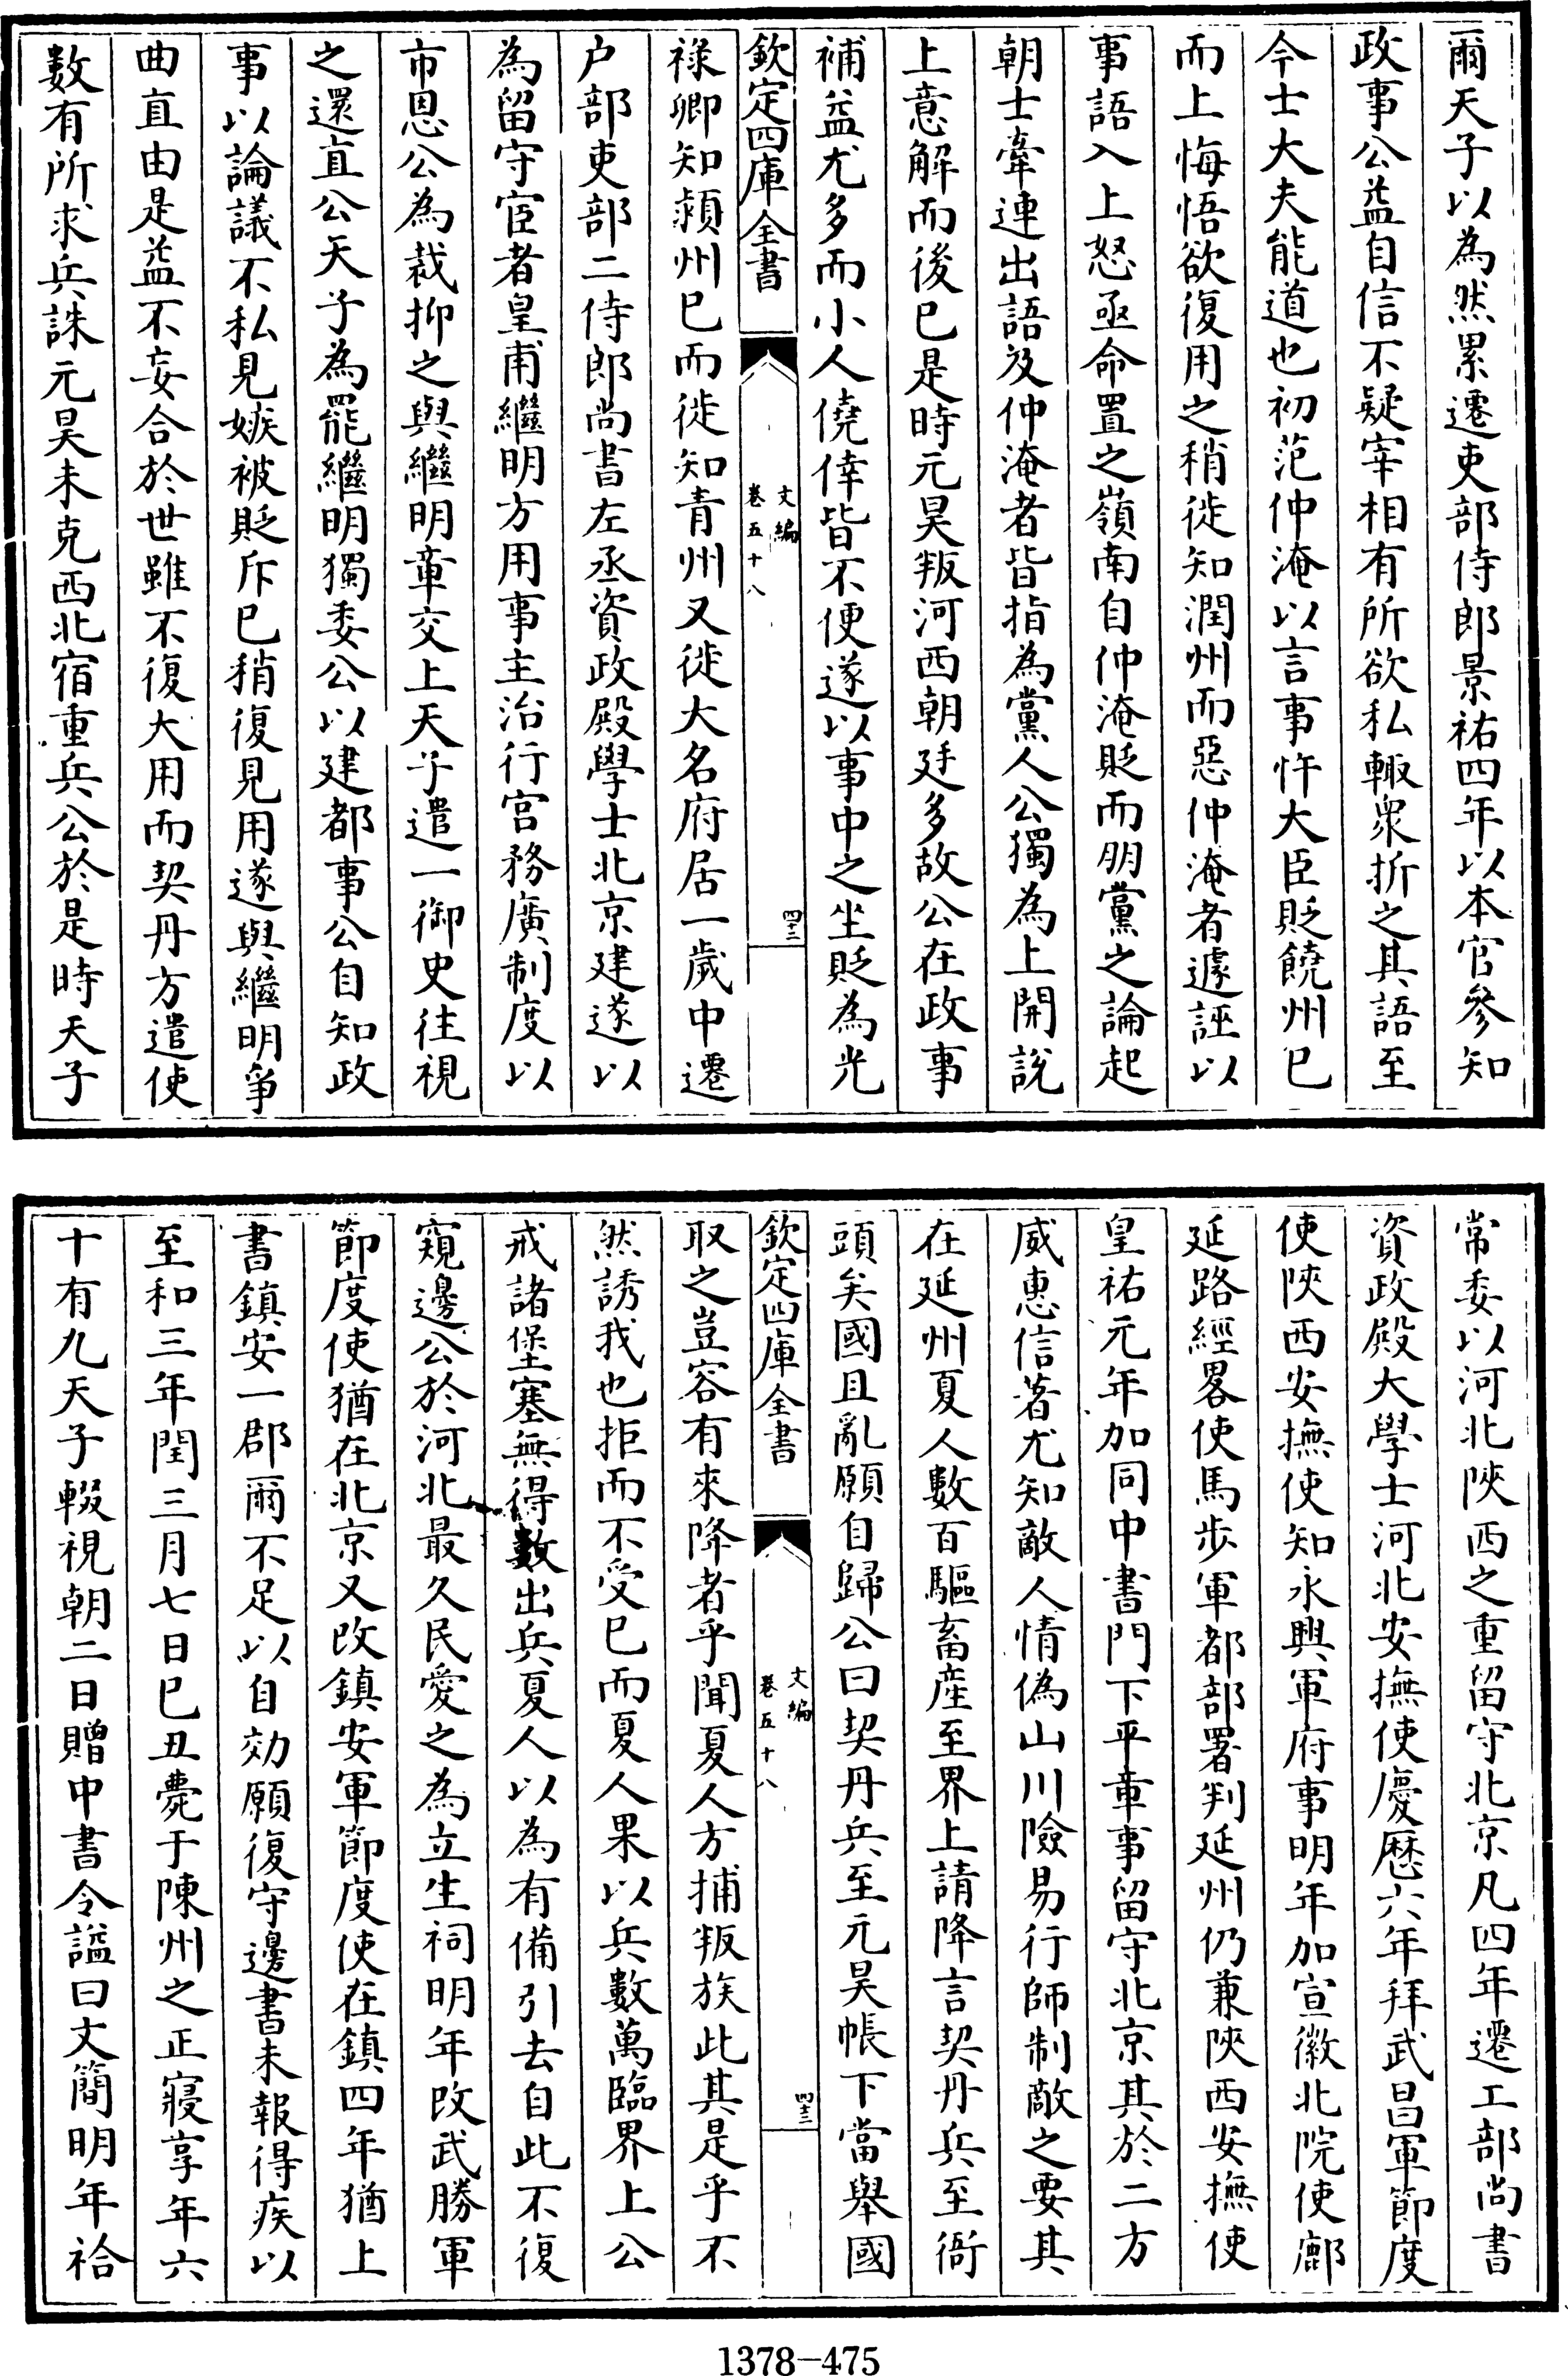 爾天子以為然累遷吏部侍郎景祐四年以本官參知
政事公益自信不疑宰相有所欲私輙衆折之其語至
今士大夫能道也初范仲淹以言事忤大臣貶饒州已
而上悔悟欲復用之稍徙知潤州而惡仲淹者遽誣以
事語入上怒亟命置之嶺南自仲淹貶而朋黨之論起
朝士牽連出語及仲淹者皆指為黨人公獨為上開說
上意解而後已是時元昊叛河西朝廷多故公在政事
補益尤多而小人僥倖皆不便遂以事中之坐貶為光
欽定四庫全書
文編
卷五十八
四十二
祿卿知潁州已而徙知青州又徙大名府居一歲中遷
户部吏部二侍郎尚書左丞資政殿學士北京建遂以
為留守宦者皇甫繼明方用事主治行宫務廣制度以
市恩公為裁抑之與繼明章交上天子遣一御史往視
之還直公天子為罷繼明獨委公以建都事公自知政
事以論議不私見嫉被貶斥已稍復見用遂與繼明爭
曲直由是益不妄合於世雖不復大用而契丹方遣使
數有所求兵誅元昊未克西北宿重兵公於是時天子
常委以河北陜西之重留守北京凡四年遷工部尚書
資政殿大學士河北安撫使慶厯六年拜武昌軍節度
使陜西安撫使知永興軍府事明年加宣徽北院使鄜
延路經畧使馬步軍都部署判延州仍兼陜西安撫使
皇祐元年加同中書門下平章事留守北京其於二方
威惠信著尤知敵人情偽山川險易行師制敵之要其
在延州夏人數百驅畜産至界上請降言契丹兵至衙
頭矣國且亂願自歸公曰契丹兵至元昊帳下當舉國
欽定四庫全書
文編
卷五十八
四十三
取之豈容有來降者乎聞夏人方捕叛族此其是乎不
然誘我也拒而不受已而夏人果以兵數萬臨界上公
戒諸堡塞無得數出兵夏人以為有備引去自此不復
窺邊公於河北最久民愛之為立生祠明年改武勝軍
節度使猶在北京又改鎮安軍節度使在鎮四年猶上
書鎮安一郡爾不足以自効願復守邊書未報得疾以
至和三年閏三月七日已丑薨于陳州之正寢享年六
十有九天子輟視朝二日贈中書令諡曰文簡明年祫
1378-475